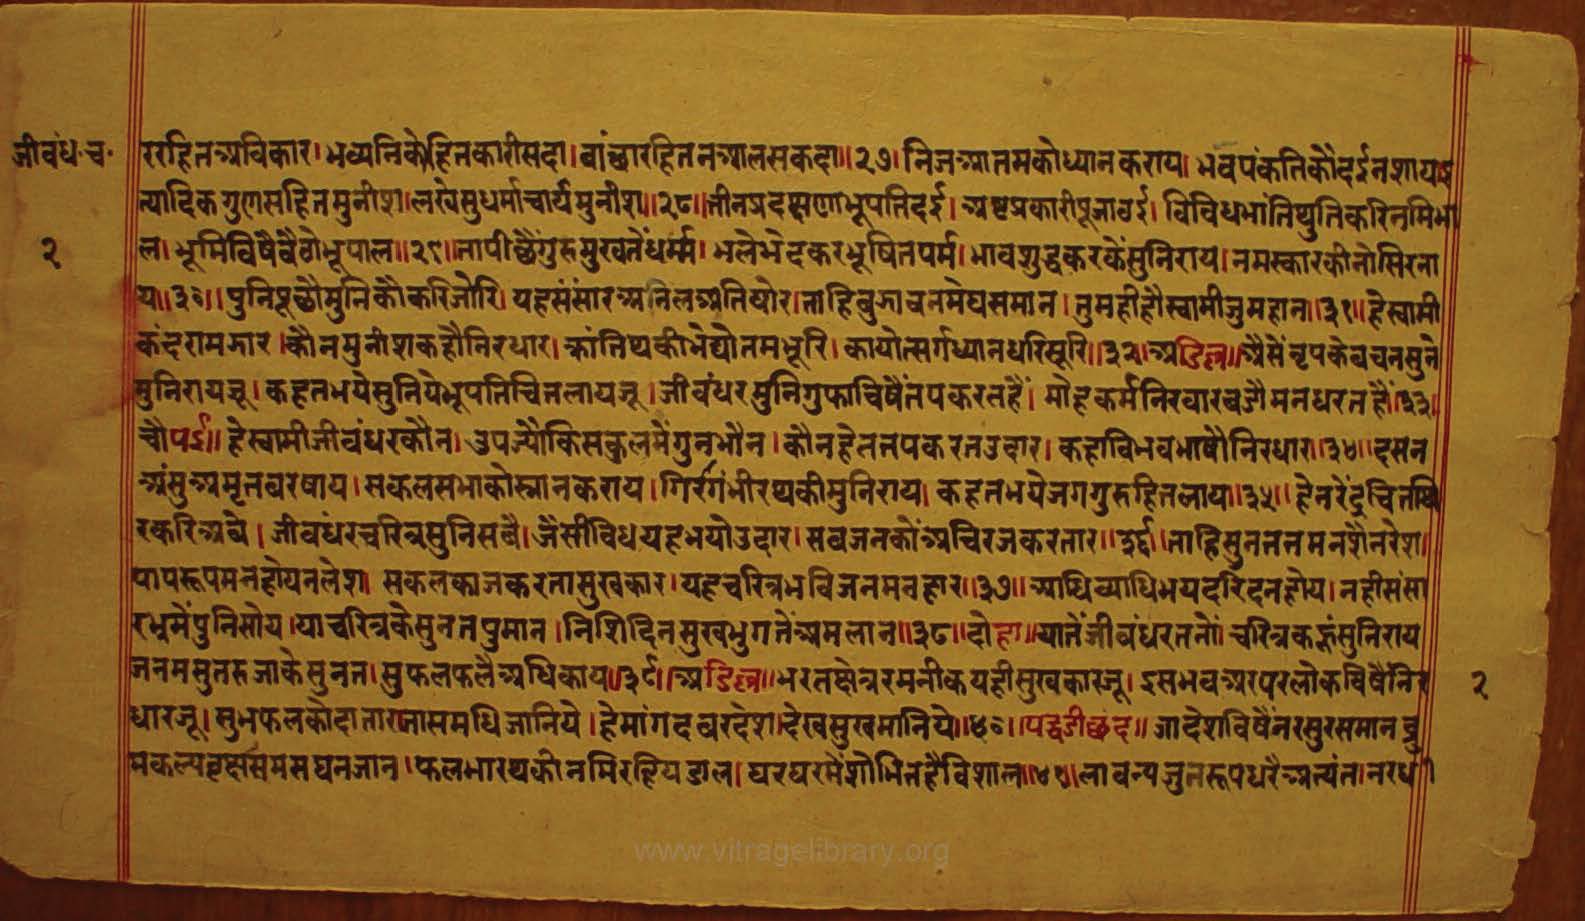 जीवंध.च. ररहितअविकार।भव्यनिकेहितकारीसदा।वांछारहितनआलसकदा॥२७।निजआतमकोध्यानकराय।भवपंकतिकौंदईनशायइ
त्यादिकगुणसहितमुनीश।लखेसुधर्माचार्यमुनीश॥२८॥तीनप्रदक्षणाभूपतिदई।अष्टप्रकारीपूजाठई।विविधभांतिथुतिकरिनमिभा
२ ल।भूमिविषैबैठोभूपाल॥२९॥तापीछैंगुरुमुखतेंधर्म्म।भलेभेदकरभूषितपर्म।भावशुद्धकरकेंमुनिराय।नमस्कारकीनोसिरना
य॥३०॥पुनिपूछौमुनिकौकरिजोरि।यहसंसारअनिलअतिघोर।ताहिबुझावनमेघसमान।तुमहीहौस्वामीजुमहान॥३१॥हेस्वामी
कंदरामझार।कौनमुनीशकहौनिरधार।क्रांतिथकीभेद्योतमभूरि।कायोत्सर्गध्यानधरिसूरि॥३२॥अडिल्ल॥अैसेंनृपकेवचनसुने
मुनिरायजू।कहतभयेसुनियेभूपतिचितलायजू।जीवंधरमुनिगुफाविषैंतपकरतहैं।मोहकर्मनिरवारवजौमनधरतहैं॥३३॥
चौपई॥हेस्वामीजीवंधरकौन।उपज्यौकिसकुलमेंगुनभौन।कौनहेततपकरतउदार।कहाविभवभाषौनिरधार॥३४॥दसन
अंसुअमृतवरषाय।सकलसभाकोस्नानकराय।गिरगंभीरथकीमुनिराय।कहतभयेजगगुरुहितलाय॥३५॥हेनरेंद्रचितथि
रकरिअबे।जीवंधरचरित्रसुनिसबै।जैसीविधयहभयोउदार।सबजनकोंअचिरजकरतार॥३६॥ताहिसुनततमनशैनरेश।
पापरूपमनहोयनलेश।सकलकाजकरतासुखकार।यहचरित्रभविजनमनहार॥३७॥आधिव्याधिभयदरिदनहोय।नहीसंसा
रभ्रमेंपुनिसोय।याचरित्रकेसुनतपुमान।निशिदिनसुखभुगतेंअमलान॥३८॥दोहा॥यातेंजीवंधरतनों।चरित्रकहूंमुनिराय
जनमसुतरुजाकेसुनत।सुफलफलैअधिकाय॥३९॥अडिल्ल॥भरतक्षेत्ररमनीकयहीसुखकारजू।इसभवअरपरलोकविषैंनिर २
धारजू।सुभफलकोदातारतासमधिजानिये।हेमांगदवरदेशदेखसुखमानिये॥४०॥पद्धडीछंद॥जादेशविषैंनरसुरसमान।द्रु
मकल्पवृक्षसमसघनजान।फलभारथकीनमिरहियडाल।घरघरमेंशोभितहैविशाल॥४१॥लावन्यजुतरूपधरैअत्यंत।नरध